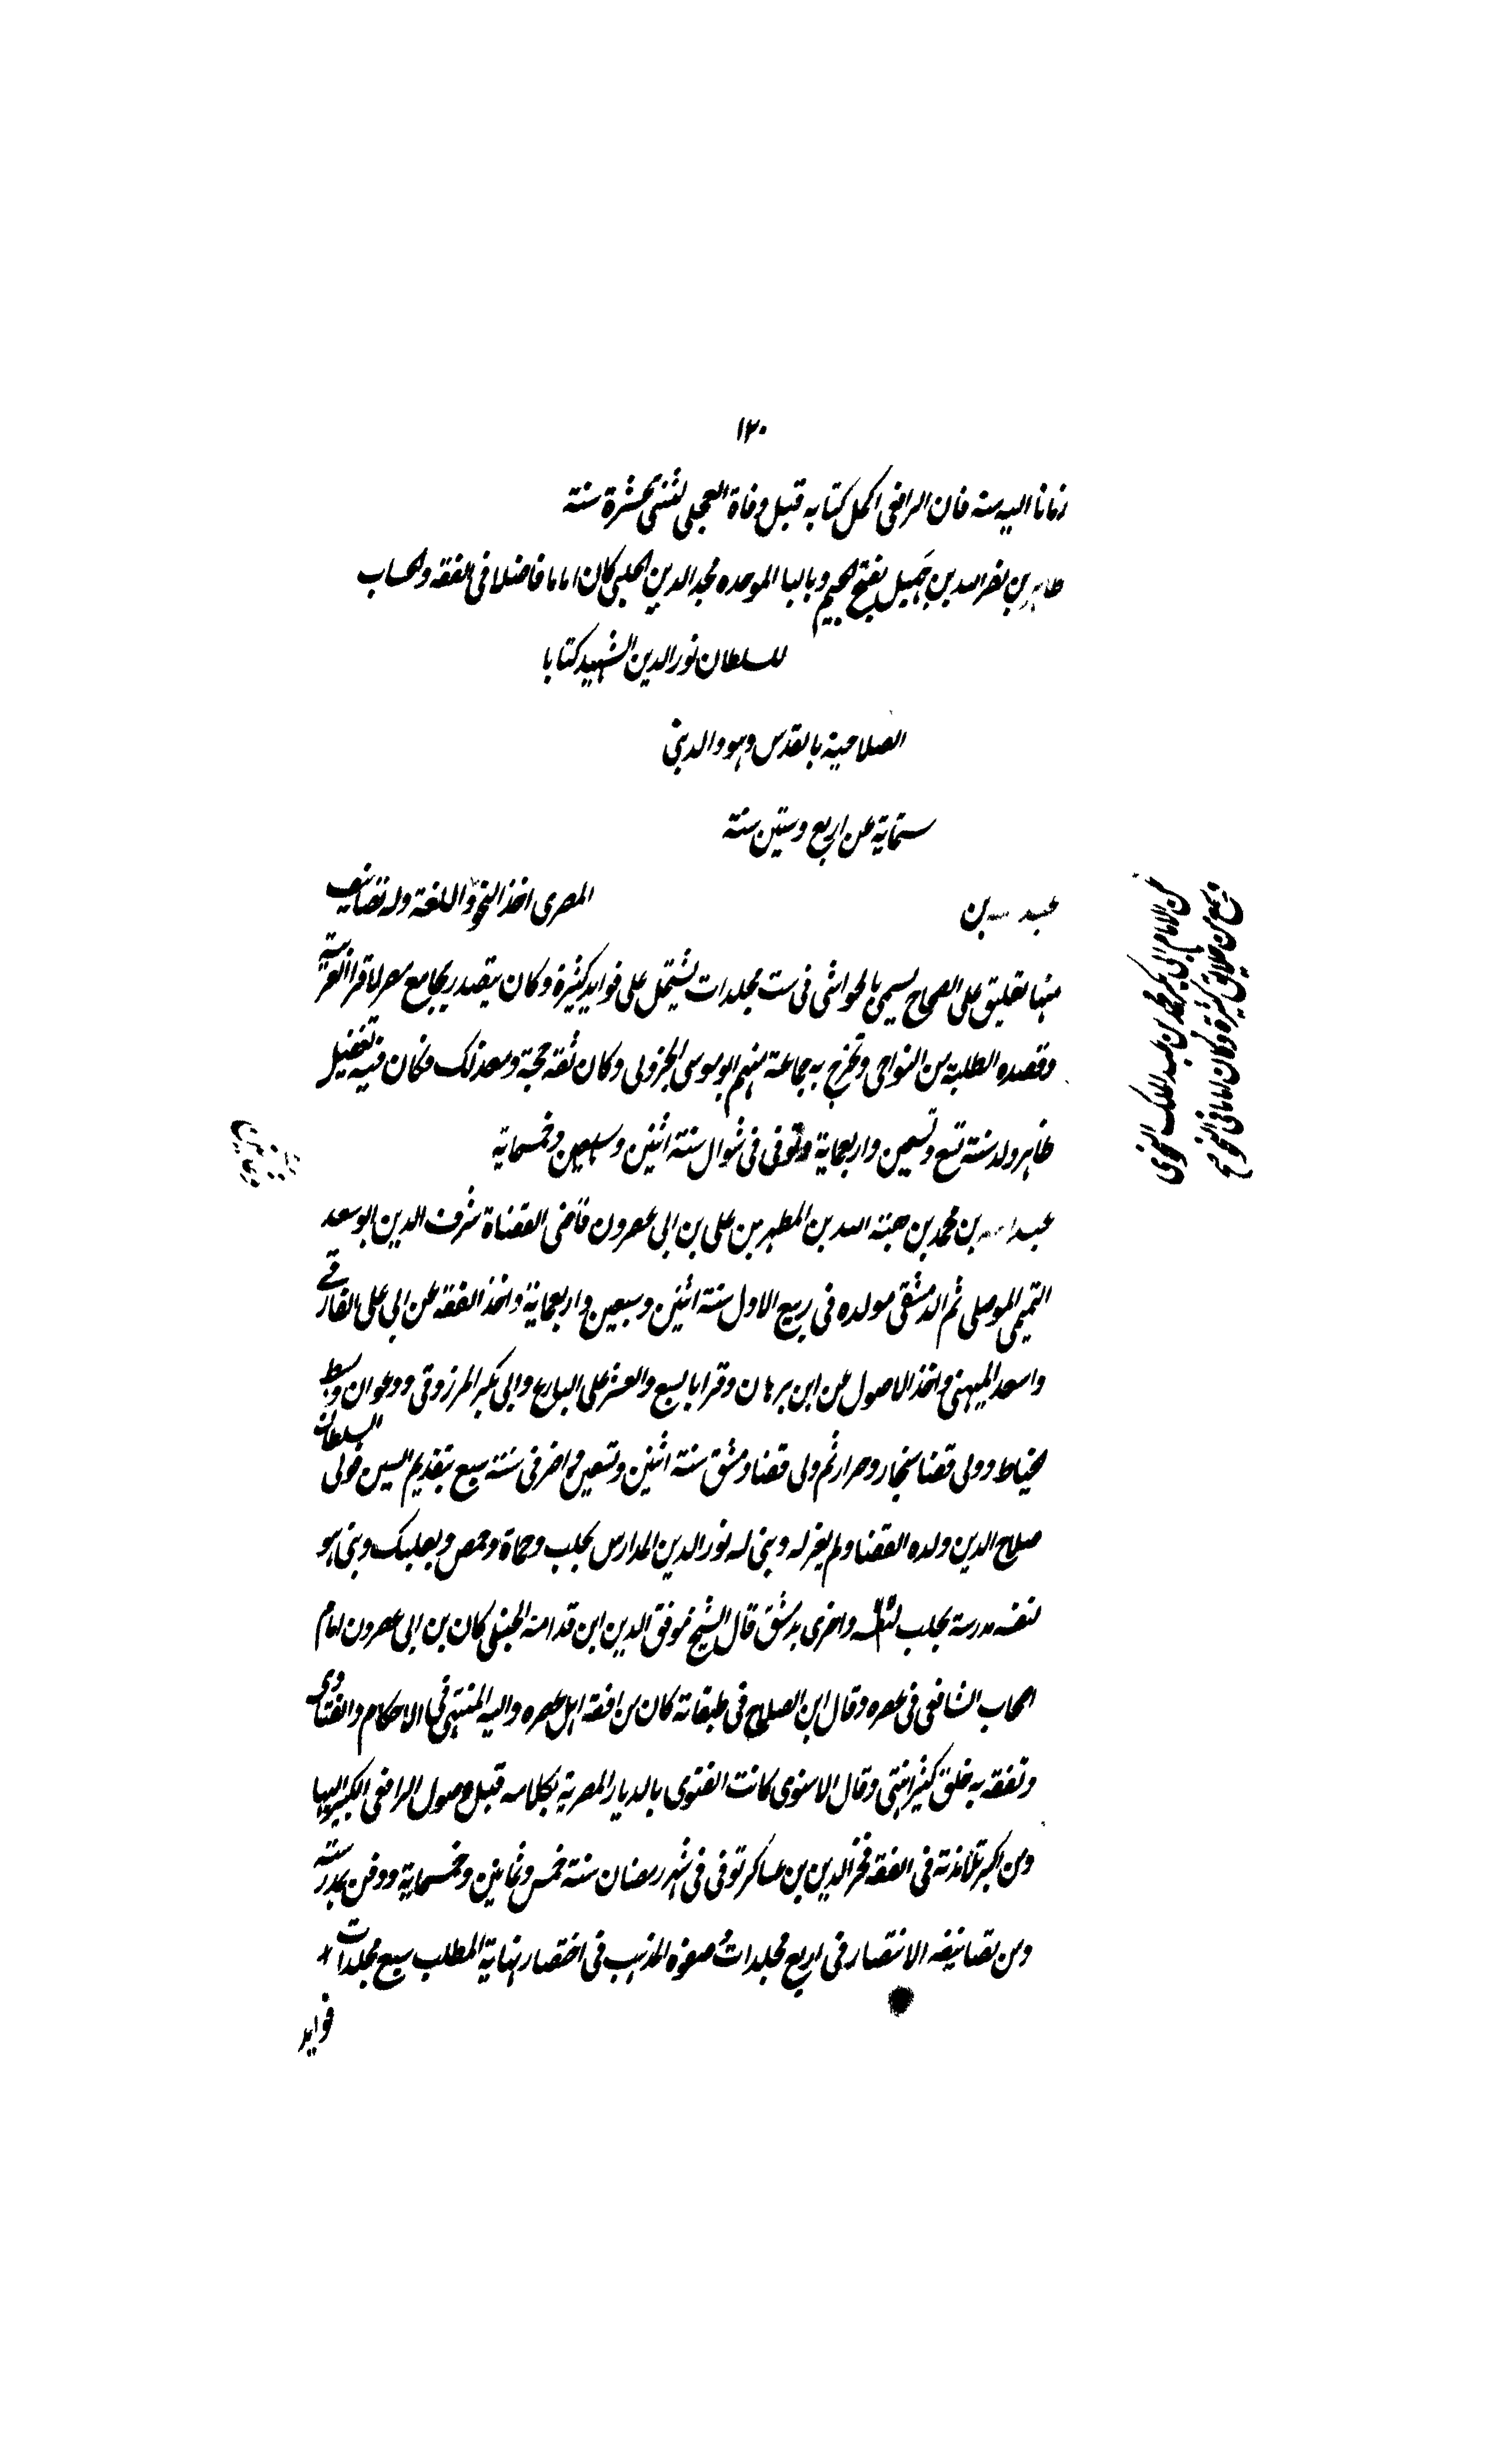 ١٢٠
زمانا اليه سنه فان الرافعى اكمل كتابه قبل وفاة العجلى لثنتى عشرة سنة
طاهر بن نصر الله بن جَهبيل بفتح الجيم وبالبا الموحده مجد الدين الحلبى كان اماما فاضلا فى الفقه والحساب
للسلطان نور الدين الشهيد كتابا
الصلاحية بالقدس وهو والد بنى
ستماية عن اربع وستين سنة
عبد الله بن المصرى اخذ النحو واللغة وله تصانيف
منها تعليق على الصحاح يسمى بالحواشى فى ست مجلدات يشتمل على فوايد كثيرة وكان يتصدر بجامع مصر لاقرا العربية
وقصده الطلبة من النواحى وتخرج به جماعة منهم ابو موسى الجزولى وكان ثقة حجة ومع ذلك فكان فيه تغفيل
ظاهر ولد سنة تسع وتسعين واربعماية وتوفى فى شوال سنة اثنين وسبعين وخمسماية
عبد الله بن محمد بن هبة الله بن المطهر بن على بن ابى عصرون قاضى القضاة شرف الدين ابو سعد
التميمى الموصلى ثم الدمشقى مولده فى ربيع الاول سنة اثنين وسبعين واربعماية واخذ الفقه عن ابى على الفارقى
واسعد الميهنى واخذ الاصول عن ابن برهان وقرا بالسبع والعشر على البارع وابى بكر المرزوقى ودعوان وسبط
الخياط وولى قضا سنجار وحران ثم ولى قضا دمشق سنة اثنين وتسعين واضر فى سنة سبع بتقديم السين فولى السلطان
صلاح الدين ولده القضا ولم يعزله وبنى له نور الدين المدارس بحلب وحماة وحمص وبعلبك وبنى هو
لنفسه مدرسة بحلب واخرى بدمشق قال الشيخ موفق الدين ابن قدامة الحنبلى كان بن ابى عصرون امام
اصحاب الشافعى فى عصره وقال ابن الصلاح فى طبقاته كان من افقه اهل عصره واليه المنتهى فى الاحكام والفتاوى
وتفقه به خلق كثير انتهى وقال الاسنوى كانت الفتوى بالديار المصرية بكلامه قبل وصول الرافعى الكبير اليها
ومن اكبر تلامذته فى الفقه فخر الدين بن عساكر توفى فى شهر رمضان سنة خمس وثمانين وخمسماية ودفن بمدرسته
ومن تصانيفه الانتصار فى اربع مجلدات صفوة المذهب فى اختصار نهاية المطلب سبع مجلدات
فوايد
عن الامام ابى بكر محمد بن عبد الملك النحوى
وسمع من خلايق كثيرة وكان اماما فى النحو